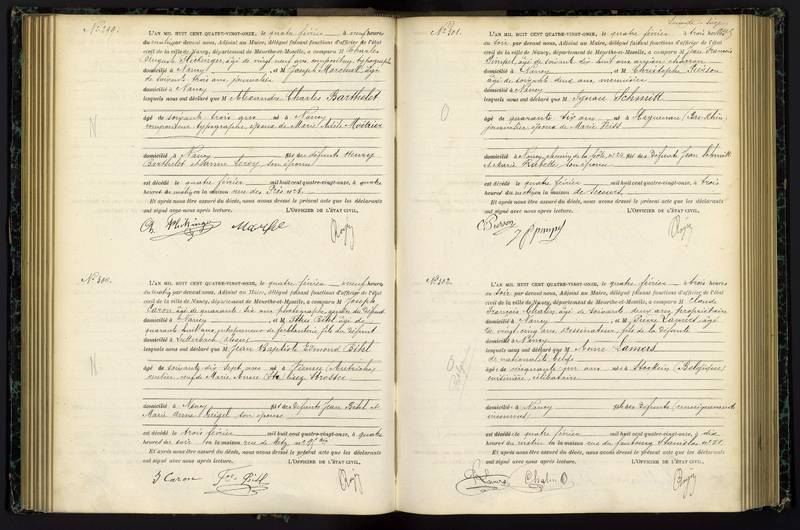 No 299.
L'AN MIL HUIT CENT QUATRE-VINGT-ONZE, le quatre février à neuf heures
du matin par devant nous, Adjoint au Maire, délégué faisant fonctions d'officier de l'état
civil de la ville de Nancy, département de Meurthe-et-Moselle, a comparu M Charles
Auguste âgé de vingt neuf ans, compositeur typographe
domicilié à Nancy, et M Joseph Marchal, âgé
de soixante trois ans, journalier
domicilié à Nancy
lesquels nous ont déclaré que M Alexandre Charles Barthelot
N
âgé de soixante trois ans né à Nancy
compositeur typographe, époux de Marie Adèle
domicilié à Nancy fils des défunts Henry
Barthelot et Anne Leroy, son épouse
est décédé le quatre février mil huit cent quatre-vingt-onze, à quatre
heures du matin en la maison rue des
Et après nous être assuré du décès, nous avons dressé le présent acte que les déclarants
ont signé avec nous après lecture. L'OFFICIER DE L'ÉTAT CIVIL,
No 300.
L'AN MIL HUIT CENT QUATRE-VINGT-ONZE, le quatre février neuf heures
du matin par devant nous, Adjoint au Maire, délégué faisant fonctions d'officier de l'état
civil de la ville de Nancy, département de Meurthe-et-Moselle, a comparu M Joseph
Caron, âgé de quarante six ans, photographe, gendre du défunt
domicilié à Nancy, et M
quarante huit ans, entrepreneur de ferblanterie, fils du défunt
domicilié à Lutterbach (Alsace)
lesquels nous ont déclaré que M Jean Baptiste Edmond
N
âgé de soixante dix sept ans né à Vienne (Autriche)
rentier, veuf de Marie Anne
domicilié à Nancy fils des défunts Jean
Marie Anne son épouse
est décédé le trois février mil huit cent quatre-vingt-onze, à quatre
heures du soir en la maison rue de Metz
Et après nous être assuré du décès, nous avons dressé le présent acte que les déclarants
ont signé avec nous après lecture. L'OFFICIER DE L'ÉTAT CIVIL,
J Caron
No 301.
L'AN MIL HUIT CENT QUATRE-VINGT-ONZE, le quatre février à trois heures
du soir, par devant nous, Adjoint au Maire, délégué faisant fonctions d'officier de l'état
civil de la ville de Nancy, département de Meurthe-et-Moselle, a comparu M Jean François
âgé de soixante dix huit ans, ancien charron
domicilié à Nancy, et M Christophe Pierson
âgé de soixante deux ans, menuisier
domicilié à Nancy
lesquels nous ont déclaré que M Ignace Schmitt
O
âgé de quarante six ans né à Haguenau (Bas-Rhin)
journalier, époux de Marie
domicilié à Nancy, chemin de la fils des défunts Jean Schmitt
et Marie son épouse
est décédé le quatre février mil huit cent quatre-vingt-onze, à trois
heures du matin en la maison de Secours
Et après nous être assuré du décès, nous avons dressé le présent acte que les déclarants
ont signé avec nous après lecture. L'OFFICIER DE L'ÉTAT CIVIL,
No 302.
L'AN MIL HUIT CENT QUATRE-VINGT-ONZE, le quatre février trois heures
du soir, par devant nous, Adjoint au Maire, délégué faisant fonctions d'officier de l'état
civil de la ville de Nancy, département de Meurthe-et-Moselle, a comparu M Claude
François Chatin, âgé de soixante deux ans, propriétaire
domicilié à Nancy, et M Pierre Lamers, âgé
de vingt cinq ans, dessinateur, fils de la défunte
domicilié à Nancy
lesquels nous ont déclaré que M Anne Lamers
de nationalité belge
O
Belgique
âgée de cinquante un ans née à (Belgique)
cuisinière, célibataire
domiciliée à Nancy fille des défunts (renseignements
inconnus)
est décédée le quatre février mil huit cent quatre-vingt-onze, à dix
heures du matin en la maison rue du faubourg Stanislas
Et après nous être assuré du décès, nous avons dressé le présent acte que les déclarants
ont signé avec nous après lecture. L'OFFICIER DE L'ÉTAT CIVIL,